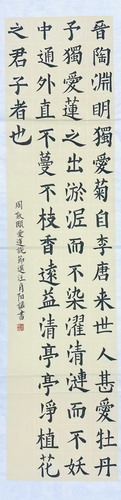 晉陶淵明獨愛菊自李唐来世人甚愛牡丹
予獨愛蓮之出淤泥而不染濯清漣而不妖
中通外直不蔓不枝香遠益清亭亭淨植花
之君子者也
周敦頤愛蓮説節選